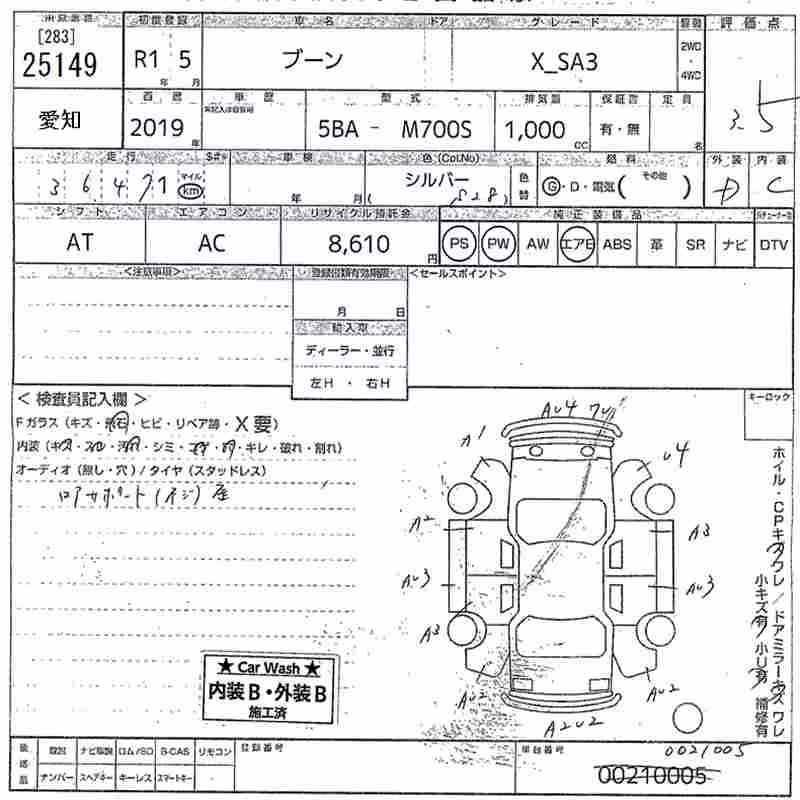 出品番号 初度登録 車名 ドア グレード 駆動 評価点
[283]
25149 R1 5 ブーン X_SA3 2WD・4WD 3.5
年 月
愛知 車歴 型式 排気量 保証書 定員
2019年 5BA - M700S 1,000 CC 有・無 名
走行 車検 色(Col.No) 燃料 外装 内装
36471 マイル km 年 月 シルバー (S28) 色替 G・D・電気( その他 ) D C
シフト エアコン リサイクル預託金 純正装備品
AT AC 8,610円 PS PW AW エアB ABS 革 SR ナビ DTV
<注意事項> 登録書類有効期限 <セールスポイント>
月 日
輸入車
ディーラー・並行
左H ・ 右H
<検査員記入欄> キーロック
Fガラス(キズ・飛石・ヒビ・リペア跡・X要)
内装(キズ・スレ・汚れ・シミ・コゲ・穴・キレ・破れ・割れ)
オーディオ(無し・穴)/タイヤ(スタッドレス)
ロアサポート(ネジ)
AU4
A1
U4
A2 A3
AU3 AU3
A3
AU2 AU2
A2U2
ホイル・CPキズワレ/ドアミラーキズワレ
小キズ有 小U有 補修有
★ Car Wash ★
内装B・外装B
施工済
後送品 取説 ナビ取説 ロム/SD B-CAS リモコン 登録番号 車台番号
ナンバー スペアキー キーレス スマートキー
0021005
00210005